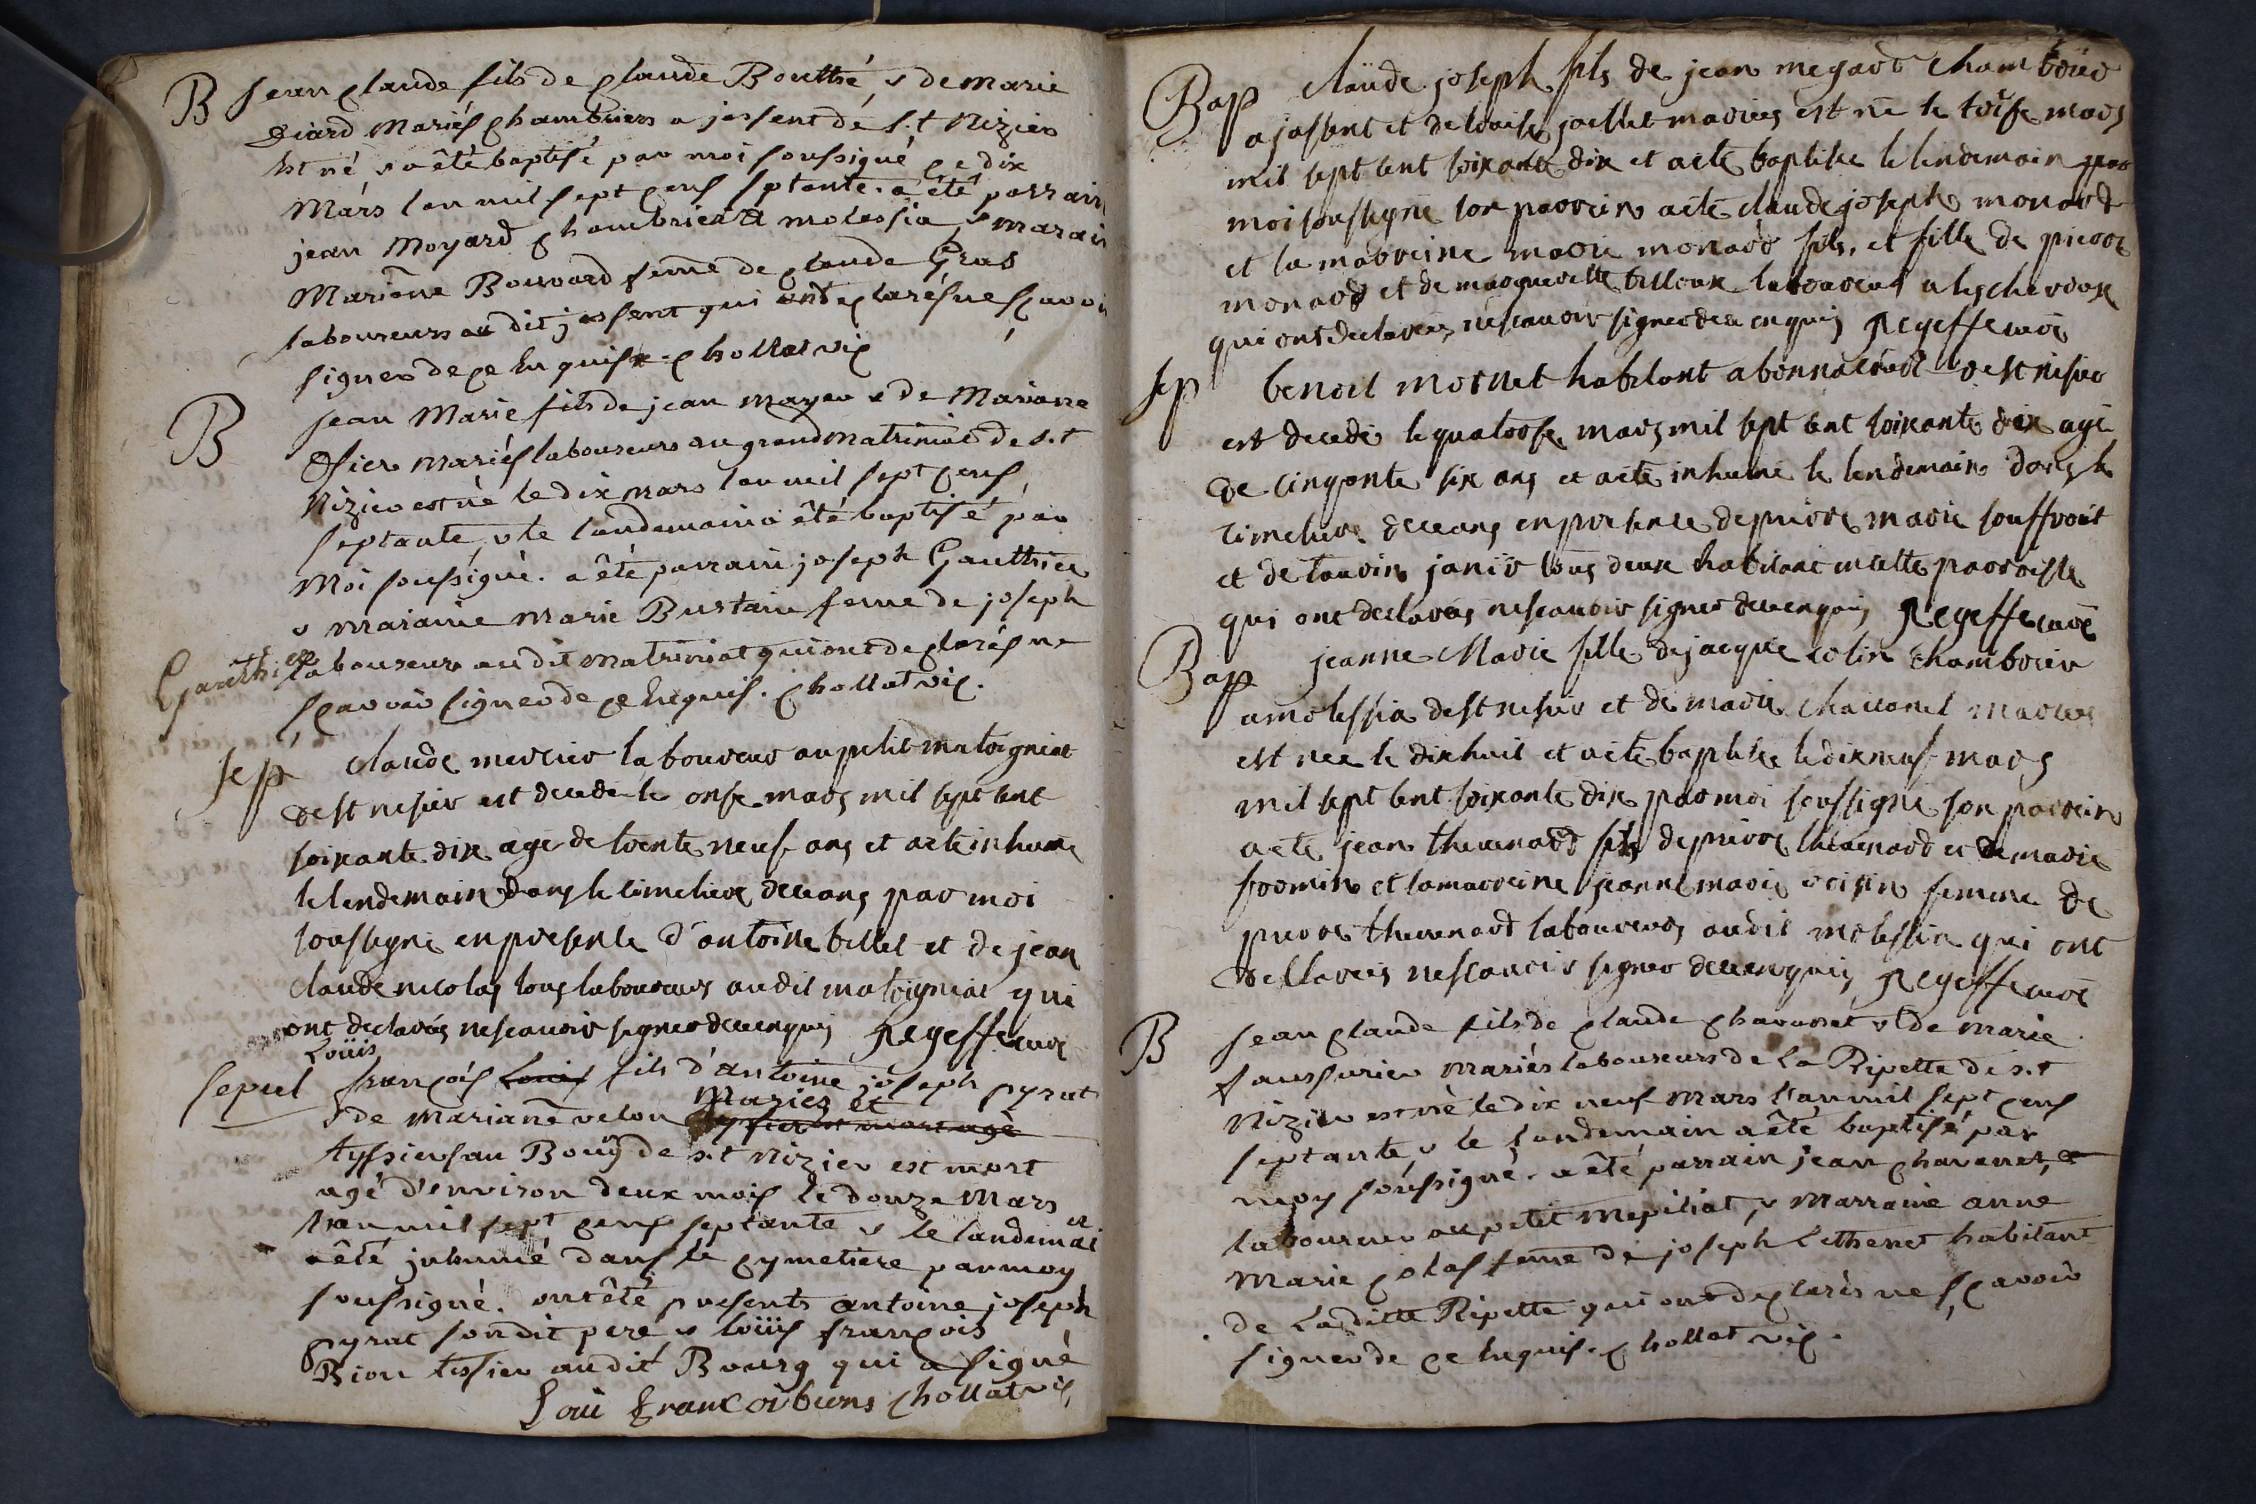 B jean claude fils de claude Bouthé, & de marie
Diard Mariés chambriers a jossent de s.t Nizier
Est né & a été baptisé par moi soussigné ce dix
Mars l'an mil sept cens septante. a été parrain
jean Moyard chambrier a molessia, & marain
Mariane Bouvard feme de claude Gras
laboureurs au dit jossent qui ont declarés ne sçavoir
signer de ce Enquis. chollat vic
B jean Marie fils de jean mayer & de Mariane
mariés laboureurs au grand matrinial de s.t
Nizier est né le dix mars l'an mil sept cens
septante, & le landemain a été baptisé par
Moi soussigné. a été parrain joseph Gauthier
& maraine Marie Bustain feme de joseph
Gauthier laboureurs au dit matriniat qui ont declarés ne
sçavoir signer de ce Enquis. chollat vic.
sep claude mercier laboureur au petit matrigniat
de st nisier est decedé le onse mars mil sept cent
soixante dix agé de trente neuf ans et a été inhumé
le lendemain dans le cimetiere de ceans par moi
soussigné en presence d'antoine billet et de jean
claude nicolas tous laboureurs au dit matrigniat qui
ont declarés ne scavoir signer de ce enquis Regeffe curé
Loüis
sepul françois Louis fils d'antoine joseph pyrat
& de Mariane velon Mariés et
tyssier au Bourg de s.t Nizier est mort
agé d'environ deux mois le douze Mars
l'an mil sept cens septante & le landemain
a été inhumé dans le cymetiere par moy
soussigné. ont été presents antoine joseph
pyrat son dit pere & loüis françois
Bion tissier au dit Bourg qui a signé
Loui francoi bions chollat vic,
Bap claude joseph fils de jean megard chambrier
a jassent et de louise jaillet mariés est né le trese mars
mil sept cent soixante dix et a été baptisé le lendemain par
moi soussigné son parrein a été claude joseph monard
et la marreine marie monard fils, et fille de pierre
monard et de marguerite billoux laboureurs a lescheroux
qui ont declarés ne scavoir signer de ce enquis Regeffe curé
sep benoit mornet habitant a bonna de st nisier
est decedé le quatorse mars mil sept cent soixante dix agé
de cinqante six ans et a été inhumé le lendemain dans le
cimetiere de ceans en presence de pierre marie souffroit
et de tauvin janir tous deux habitant en cette parroisse
qui ont declarés ne scavoir signer de ce enquis Regeffe curé
Bap jeanne Marie fille de jacque colin chambrier
a molessia de st nisier et de marie chaironet mariés
est nee le dix huit et a été baptisée le dix neuf mars
mil sept cent soixante dix par moi soussigné son parrein
a été jean thevenard fils de pierre thevenard et de marie
fromin et la marreine jeanne marie voisin femme de
pierre thevenard laboureurs au dit molessia qui ont
declarés ne scavoir signer de ce enquis Regeffe curé
B jean claude fils de claude chavanet & de marie
faussurier mariés laboureurs de La Ripette de s.t
Nizier est né le dix neuf Mars l'an mil sept cens
septante & le landemain a été baptisé par
moy soussigné. a été parrain jean chavanet,
laboureur au petit Mepiliat, & Marraine anne
Marie colas feme de joseph Lethenet habitant
de La ditte Ripette qui ont declarés ne sçavoir
signer de ce Enquis. chollat vic.